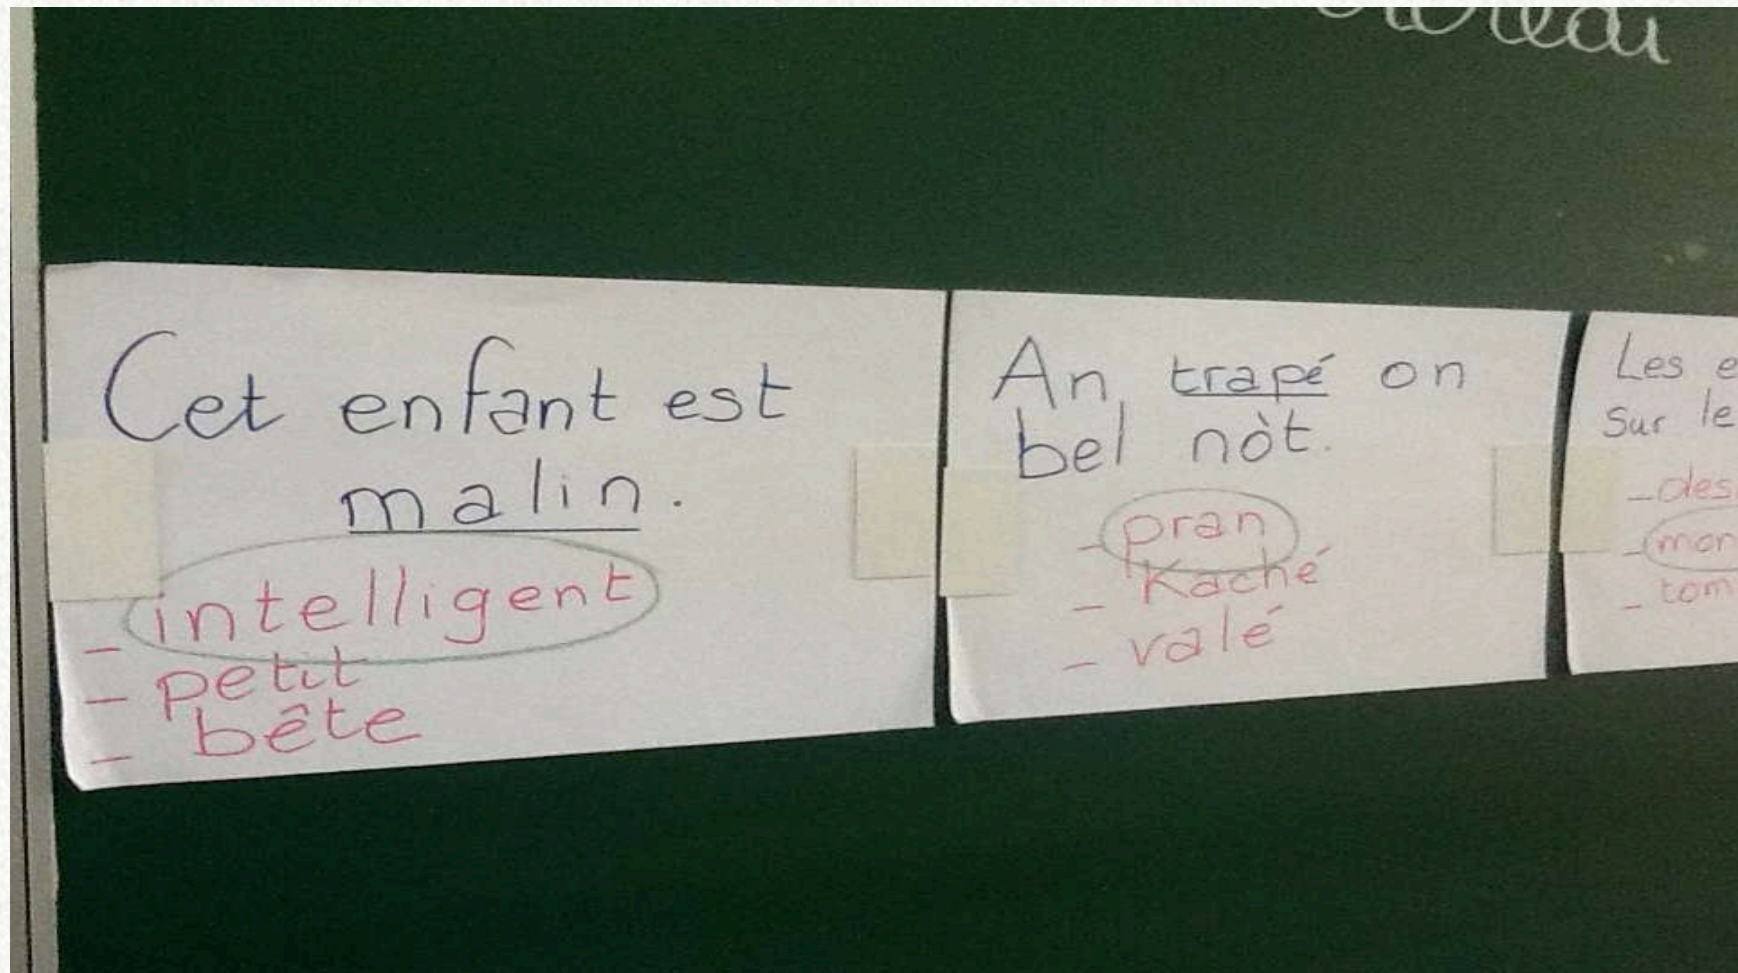 Cet enfant est
malin.
- intelligent
- petit
- bête
An trapé on
bel nòt.
- pran
- Kaché
- valé
Les
sur